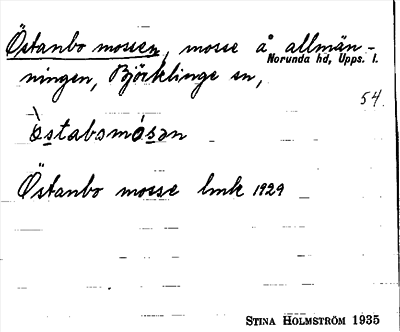 Östanbo mossen, mosse å allmän-
Norunda hd, Upps. l.
ningen, Björklinge sn,
54.
ò̀stabomósan
Östanbo mosse lmk 1929
STINA HOLMSTRÖM 1935